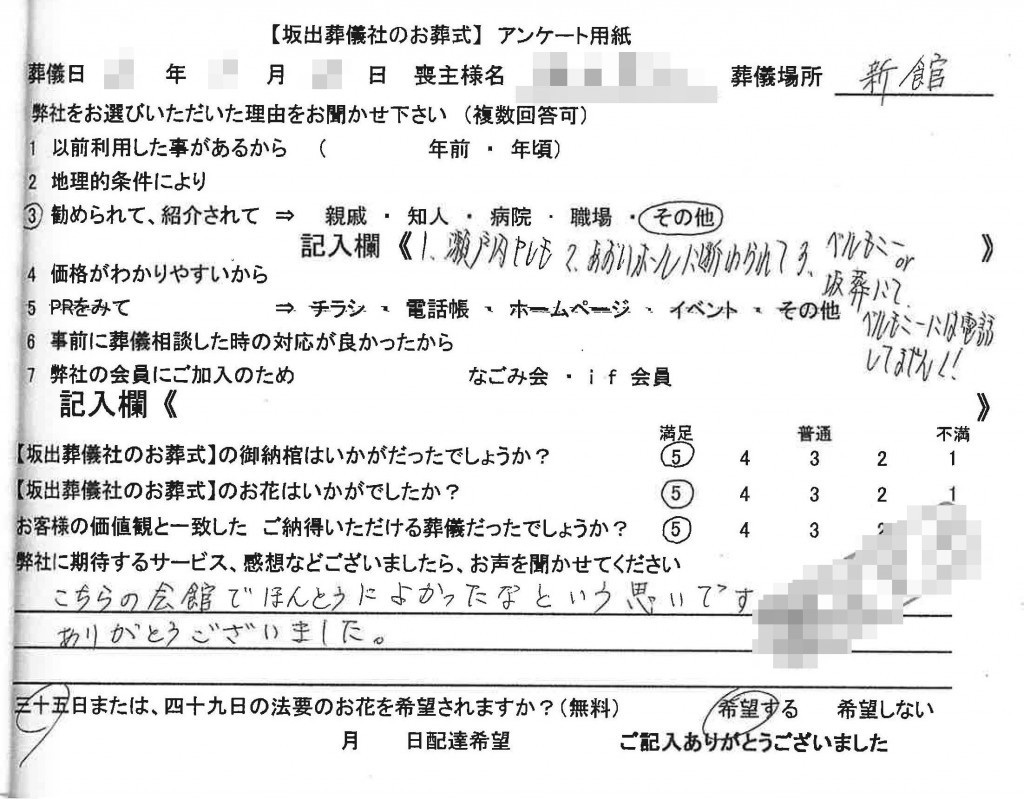 【坂出葬儀社のお葬式】 アンケート用紙
葬儀日 年 月 日 喪主様名 葬儀場所 新館
弊社をお選びいただいた理由をお聞かせ下さい (複数回答可)
1 以前利用した事があるから ( 年前 ・ 年頃)
2 地理的条件により
③ 勧められて、紹介されて ⇒ 親戚 ・ 知人 ・ 病院 ・ 職場 ・ その他
記入欄 《 1、瀬戸内セレモ 2、あおいホールに断わられて 3、ベルモニー or 坂葬にて、 》
ベルモニーには電話してません!
4 価格がわかりやすいから
5 PRをみて ⇒ チラシ ・ 電話帳 ・ ホームページ ・ イベント ・ その他
6 事前に葬儀相談した時の対応が良かったから
7 弊社の会員にご加入のため なごみ会 ・ if 会員
記入欄 《 》
満足 普通 不満
【坂出葬儀社のお葬式】の御納棺はいかがだったでしょうか? ⑤ 4 3 2 1
【坂出葬儀社のお葬式】のお花はいかがでしたか? ⑤ 4 3 2 1
お客様の価値観と一致した ご納得いただける葬儀だったでしょうか? ⑤ 4 3 2
弊社に期待するサービス、感想などございましたら、お声を聞かせてください
こちらの会館でほんとうによかったなという思いです
ありがとうございました。
三十五日または、四十九日の法要のお花を希望されますか?(無料) 希望する 希望しない
月 日配達希望 ご記入ありがとうございました